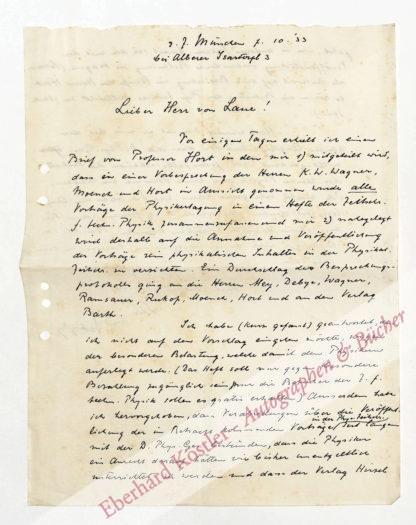 z. Z. München 7. 10. '33
bei Alberer Isartorpl 3
Lieber Herr von Laue!
Vor einigen Tagen erhielt ich einen
Brief von Professor Hort in dem mir 1) mitgeteilt wird,
dass in einer Vorbesprechung der Herren K. W. Wagner,
Moench und Hort in Aussicht genommen wurde alle
Vorträge der Physikertagung in einem Hefte der Zeitschr.
f. techn. Physik zusammenzufassen und mir 2) nahegelegt
wird deshalb auf die Annahme und Veröffentlichung
der Vorträge rein physikalischen Inhaltes in der Physikal.
Zeitschr. zu verzichten. Ein Durchschlag des Besprechungs-
protokolls ging an die Herren Mey, Debye, Wagner,
Ramsauer, Rukop, Moench, Hort und an den Verlag
Barth.
Ich habe (kurz gefasst) geantwortet,
ich nicht auf den Vorschlag eingehen
der besonderen Belastung, welche damit den Physikern
auferlegt werde. (Das Heft soll nur gegen besondere
Bezahlung zugänglich sein, die Bezieher der Z. f.
techn. Physik sollen es gratis erhalten) Ausserdem habe
ich hervorgehoben, dass über die Veröffent-
lichung der in Betracht kommenden Vorträge seit langem
in der Phys. Zeitschr.
mit der D. Phys. Ges. dass die Physiker
ein Anrecht darauf hätten wie bisher unentgeltlich
unterrichtet zu werden und dass der Verlag Hirzel
Eberhard Köstler Autographen & Bücher